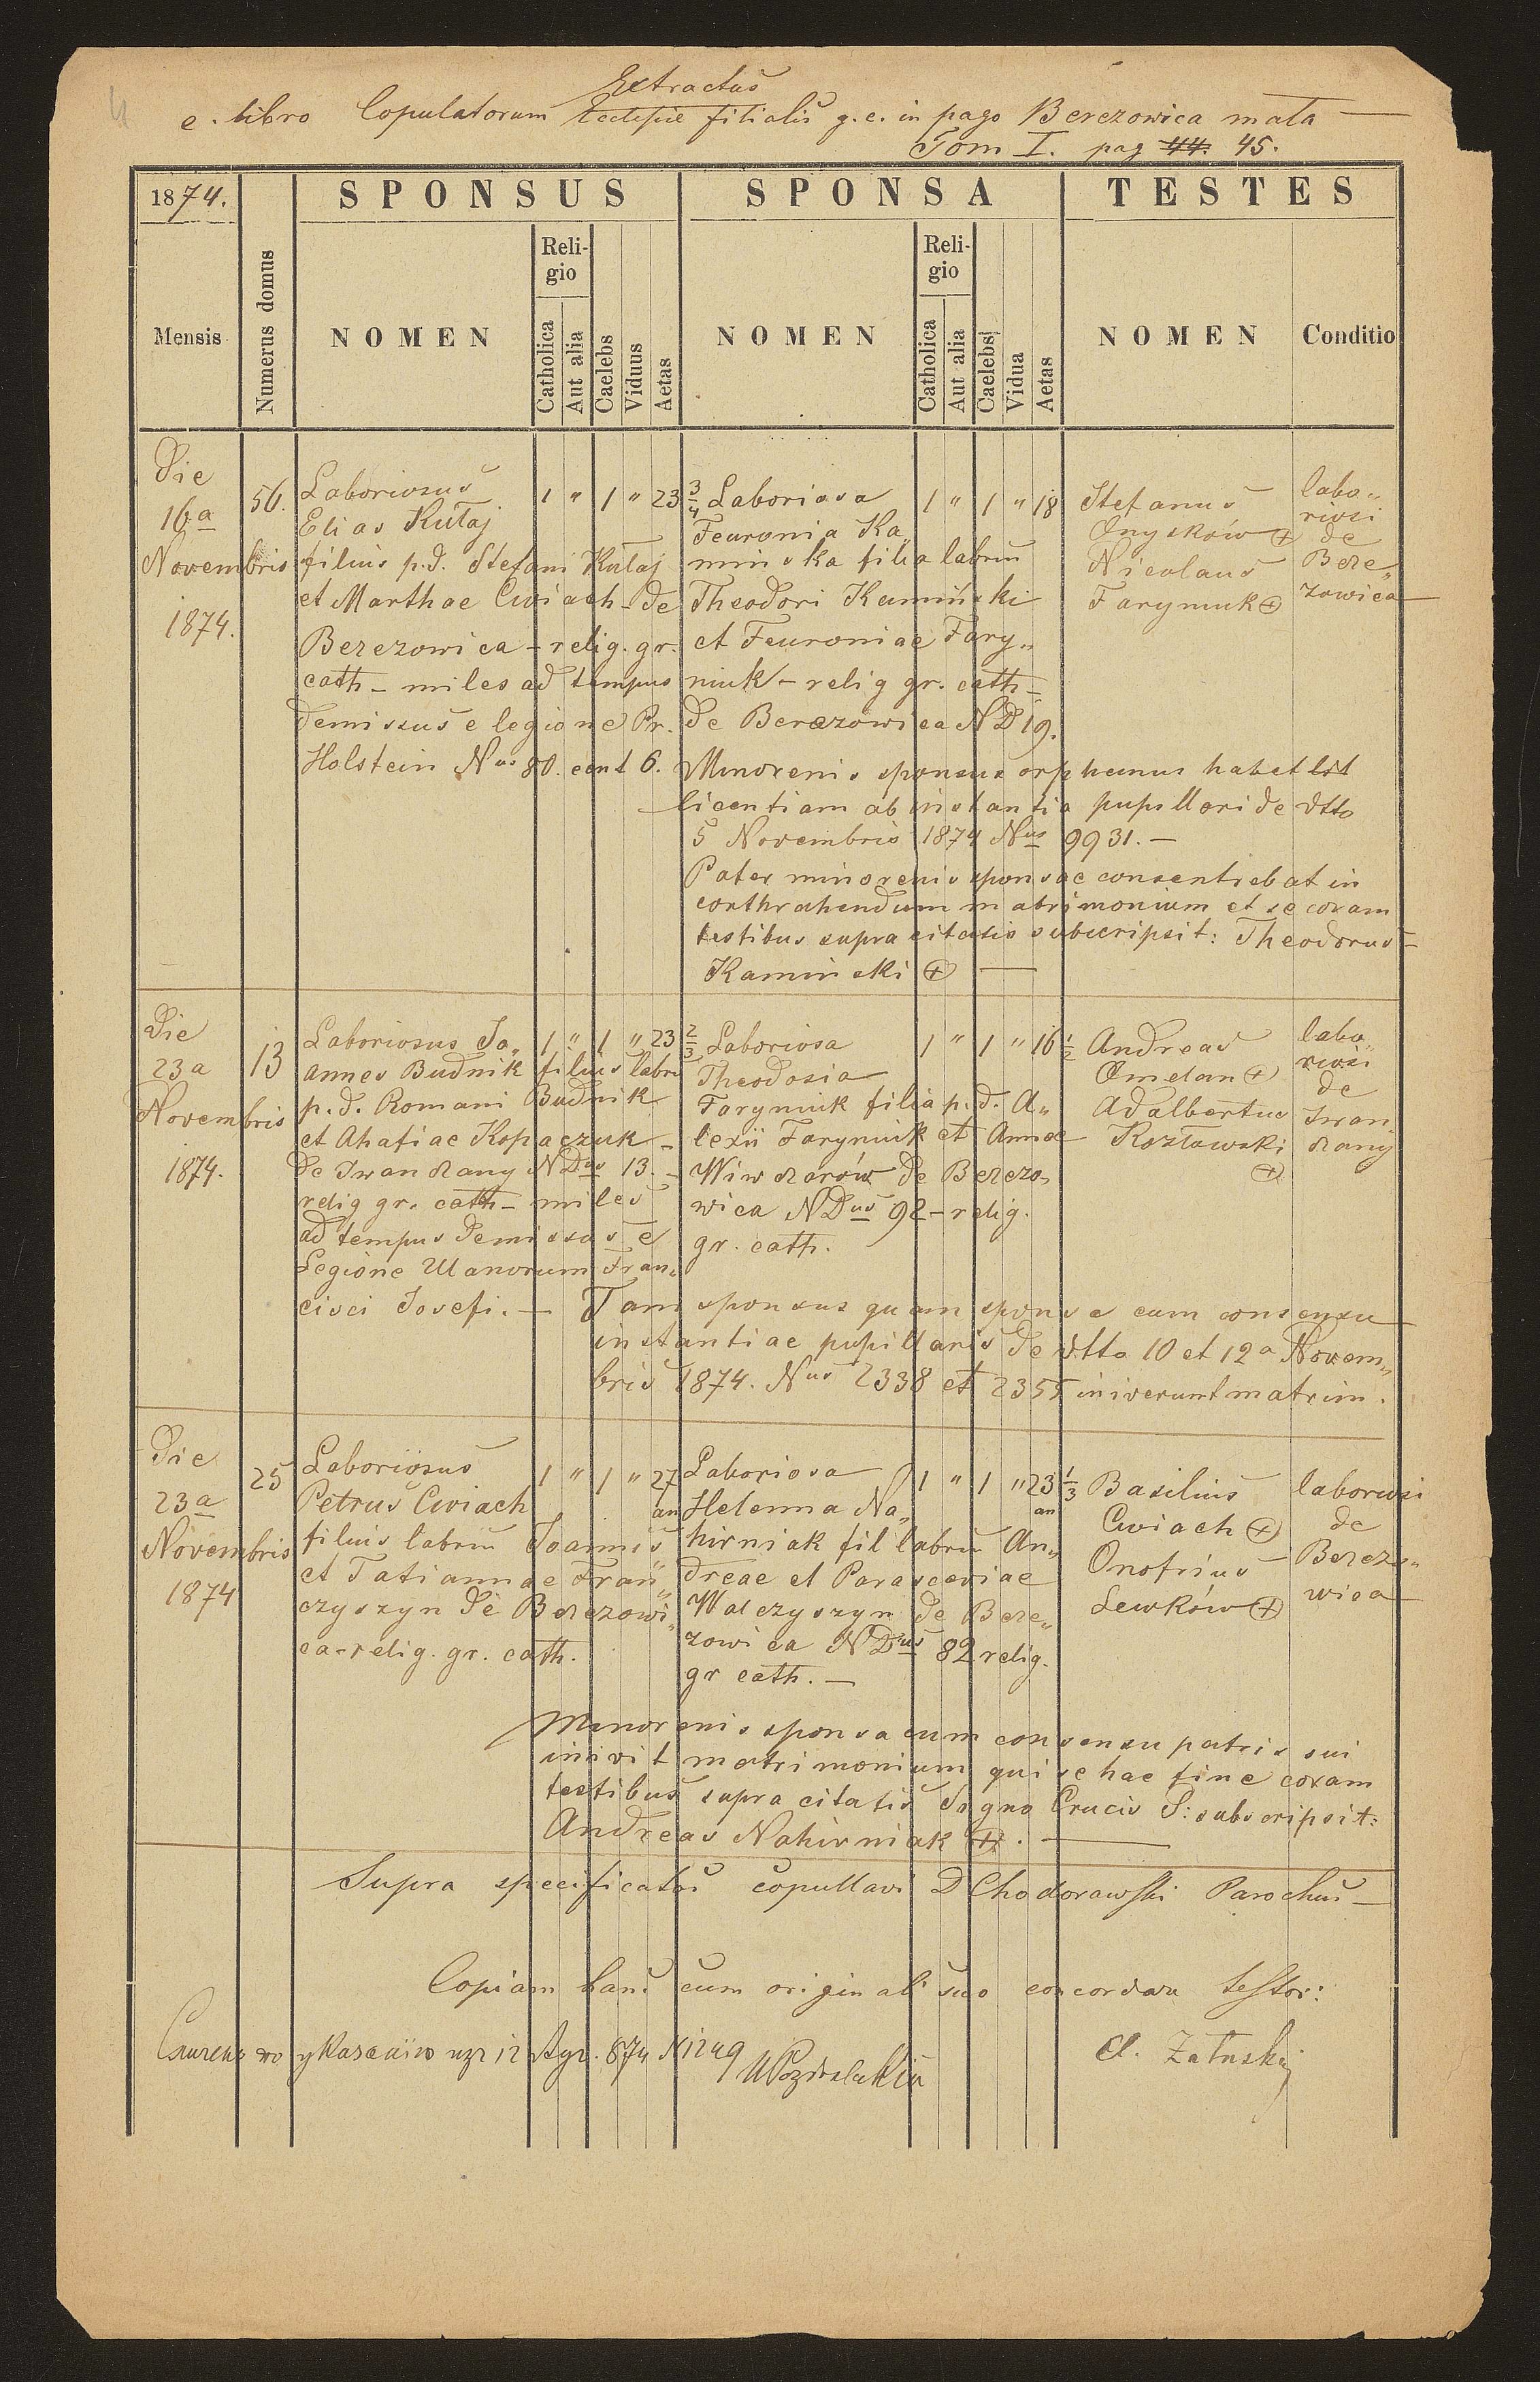 Extractus
e. libro Copulatorum Ecclesiae filialis g. c. in pago Berezowica mała
Tom I. pag 44. 45.
1874.
SPONSUS
SPONSA
TESTES
Mensis
Numerus domus
NOMEN
Religio
Catholica
Aut alia
Caelebs
Viduus
Aetas
NOMEN
Religio
Catholica
Aut alia
Caelebs
Vidua
Aetas
NOMEN
Conditio
Die
16a
Novembris
1874.
56.
Laboriosus
Elias Kułaj
filius p.d. Stefani Kułaj
et Marthae Cwiach de
Berezowica - relig. gr.
cath - miles ad tempus
demissus e legione Pr.
Holstein Nus 80. cent 6.
1 " 1 " 23 3/4
Laboriosa
Feuronia Ka„
minska filia labru
Theodori Kamiński
et Feuroniae Fary„
niuk - relig gr. cath -
de Berezowica ND 19.
1 " 1 " 18
Stefanus
Onysków +
Nicolaus
Faryniuk +
labo„
riosi
de
Bere„
zowica
Minorenis sponsus orphanus habet
licentiam ab instantia pupillari de dtto
5 Novembris 1874 Nus 9931. -
Pater minorenis sponsae consentiebat in
conthrahendum matrimonium et se coram
testibus supra citatis subscripsit: Theodorus -
Kaminski +
Die
23a
Novembris
1874.
13
Laboriosus Jo„
annes Budnik filius labru
p.d. Romani Budnik
et Ahafiae Kopaczuk -
de Iwanczany NDus 13. -
relig gr. cath - miles
ad tempus demissus e
Legione Ulanorum Fran„
cisci Josefi. -
1 " 1 " 23 2/3
Laboriosa
Theodosia
Faryniuk filia p.d. A„
lexii Faryniuk et Annae
Wiwczarów de Berezo„
wica NDus 92 - relig.
gr. cath.
1 " 1 " 16 1/2
Andreas
Omelan +
Adalbertus
Kozłowski
+
labo„
riosi
de
Iwan„
czany
Tam sponsus quam sponsa cum consensu
instantiae pupillaris de dtto 10 et 12a Novem„
bris 1874. Nus 2338 et 2355 iniverunt matrim.
Die
23a
Novembris
1874
25
Laboriosus
Petrus Cwiach
filius labru Joannis
et Tatiannae Fran„
czyszyn de Berezowi„
ca - relig. gr. cath.
1 " 1 " 27
an
Laboriosa
Helenna Na„
hirniak fil labru An„
dreae et Parasceviae
Walczyszyn de Bere„
zowica NDus 82 relig.
gr cath. -
1 " 1 " 23 1/3
an
Basilius
Cwiach +
Onofrius
Lewków +
laboriosi
de
Berezo„
wica
Minorenis sponsa cum consensu patris sui
inivit matrimonium qui se hac fine coram
testibus supra citatis Signo Crucis S: subscripsit:
Andreas Nahirniak +. -
Supra specificatos copullavi D Chodorawski Parochus -
Copiam hanc cum originali suo concordare testor:
874 N 1249
A. Załuskij